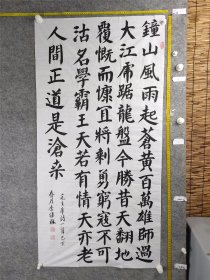 鐘山風雨起蒼黃百萬雄師過
大江虎踞龍盤今勝昔天翻地
覆慨而慷宜將剩勇窮寇不可
沽名學霸王天若有情天亦老
人間正道是滄桒
毛主席詩一首
春月李